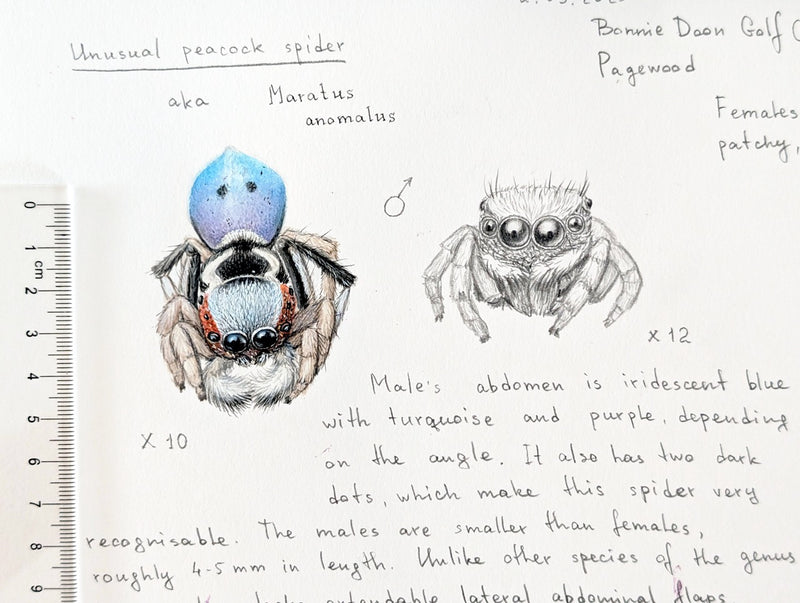 Bonnie Doon Golf
Pagewood
Unusual peacock spider
aka Maratus
anomalus
Females
patchy,
♂
0
1
cm
2
3
4
5
6
7
8
9
x 12
x 10
Male's abdomen is iridescent blue
with turquoise and purple, depending
on the angle. It also has two dark
dots, which make this spider very
recognisable. The males are smaller than females,
roughly 4-5 mm in length. Unlike other species of the genus
extendable lateral abdominal flaps